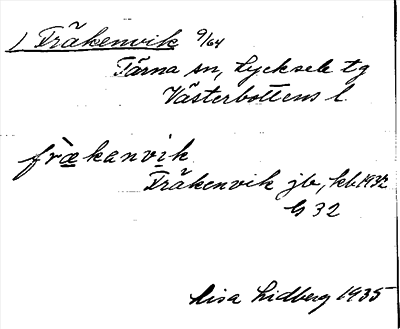 / Fräkenvik 9/64
Tärna sn, Lycksele tg
Västerbottens l.
frækanvik
Fräkenvik jb, kb 1932
h 32
Lisa Lidberg 1935